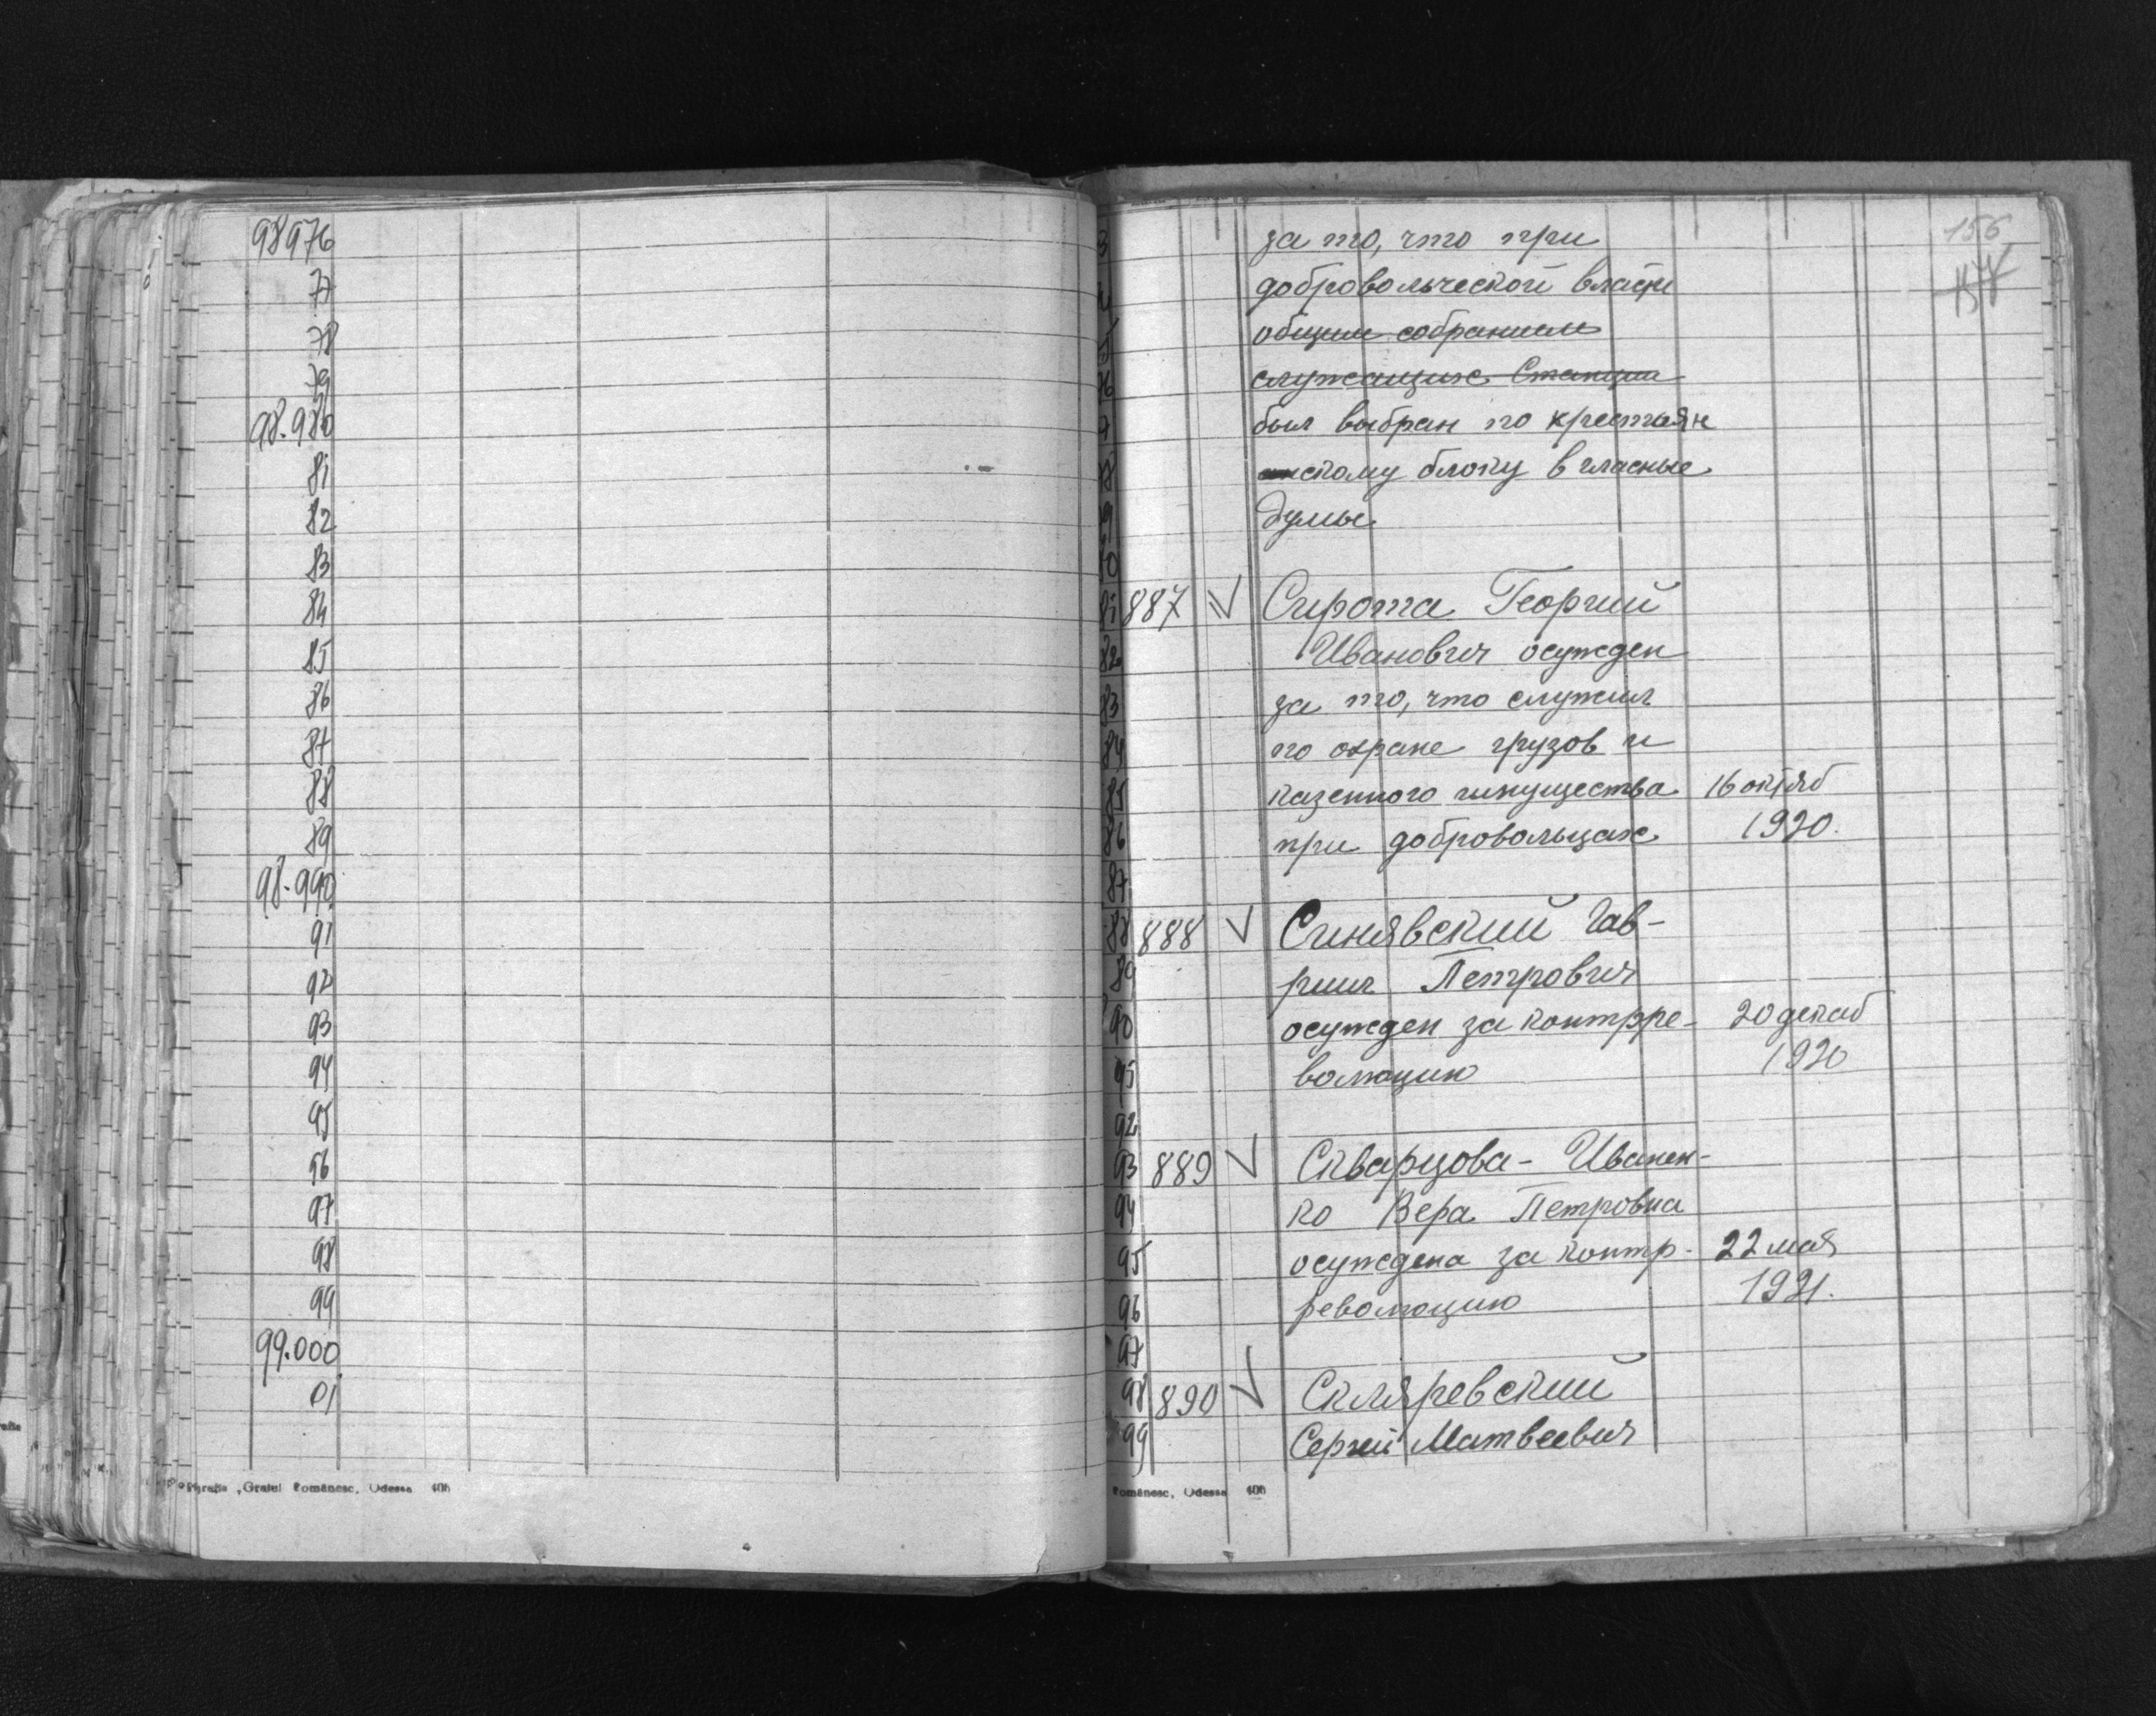 98976
77
78
79
98.980
81
82
83
84
85
86
87
88
89
98.990
91
92
93
94
95
96
97
98
99
99.000
01
„Graiul Românesc, Odessa 406
156
за то, что при
добровольческой власти
общим собранием
служащих Станции
был выбран по крестьян
скому блоку в гласные
думы
81 887 Сирота Георгий
82 Иванович осужден
83 за то, что служил
84 по охране грузов и
85 казенного имущества 16 октяб
86 при добровольцах 1920.
87
88 888 Синявский Гав-
89 риил Петрович
90 осужден за контрре- 20 декаб
91 волюцию 1920
92
93 889 Скварцова- Иванен-
94 ко Вера Петровна
95 осуждена за контр- 22 мая
96 революцию 1921.
97
98 890 Скляревский
99 Сергей Матвеевич
Românesc, Odessa 406